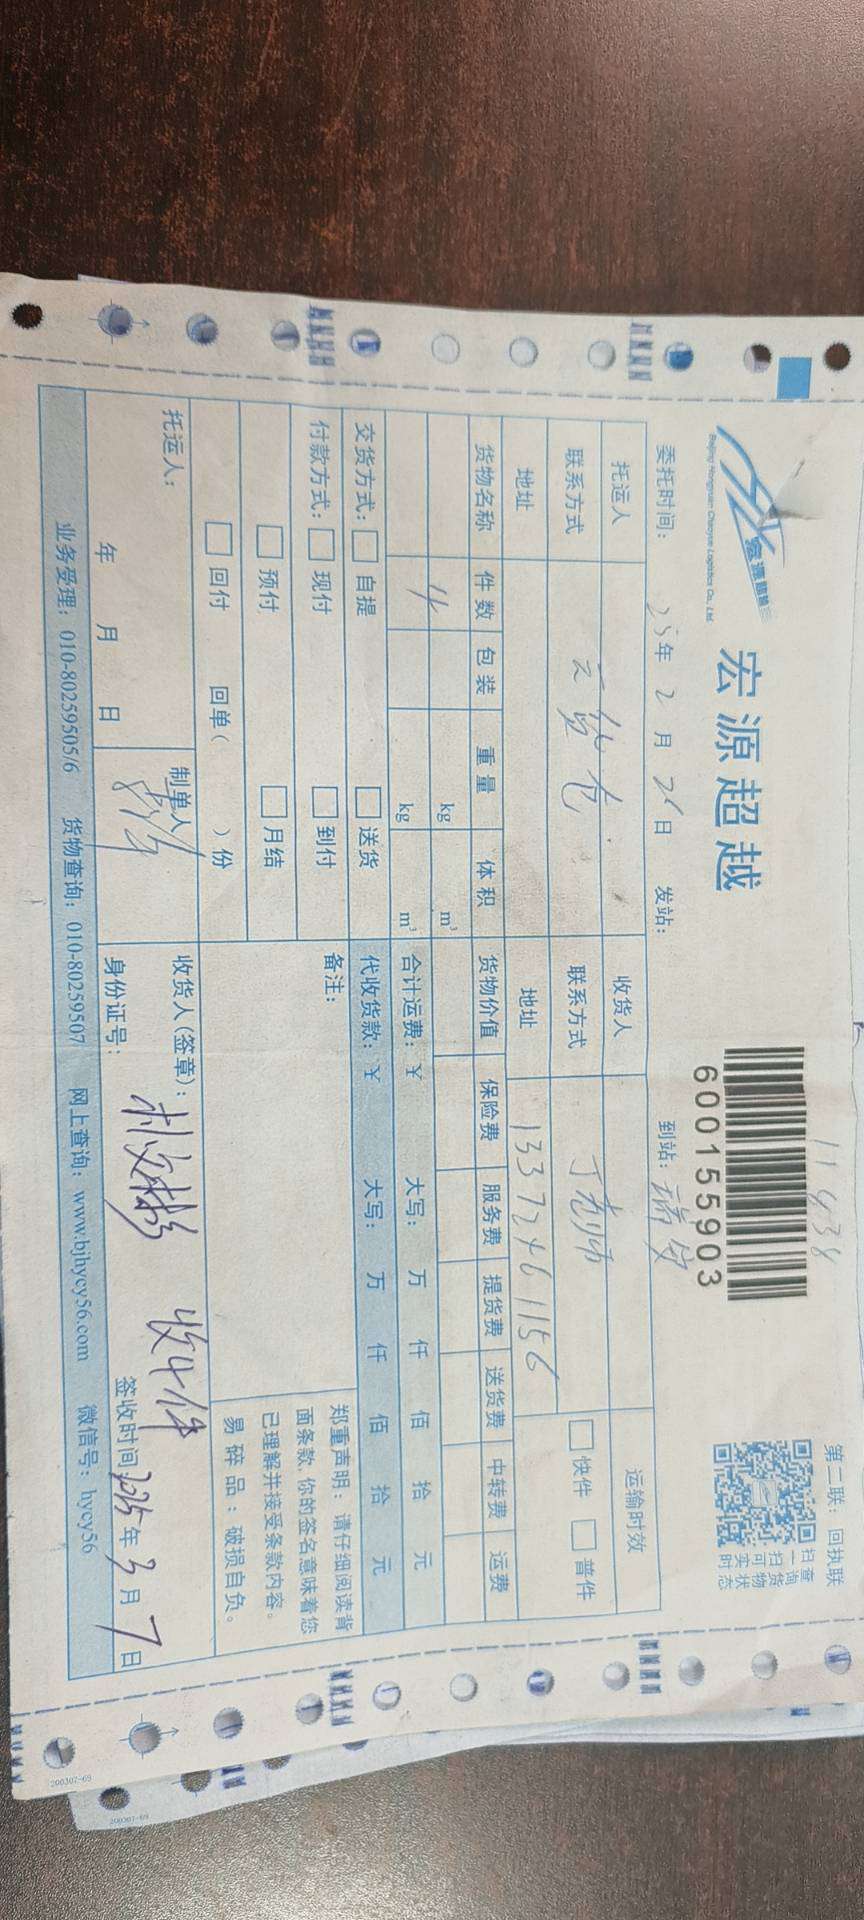 宏源超越
Beijing Hongyuan Chaoyue Logistics Co., Ltd.
宏源超越
11438
600155903
第二联：回执联
扫一扫可实时
查询货物状态
委托时间：25年2月26日 发站： 到站：瑞安
托运人 收货人 运输时效
联系方式 云 仓 联系方式 丁老师 快件 普件
地址 地址 13372461156
货物名称 件数 包装 重量 体积 货物价值 保险费 服务费 提货费 送货费 中转费 运费
4 kg m³
kg m³ 合计运费：￥ 大写： 万 仟 佰 拾 元
交货方式： 自提 送货 代收货款：￥ 大写： 万 仟 佰 拾 元
付款方式： 现付 到付 备注：
预付 月结
回付 回单（ ）份
郑重声明：请仔细阅读背
面条款，你的签名意味着您
已理解并接受条款内容。
易碎品：破损自负。
托运人： 制单人 收货人（签章）： 收4件
年 月 日 身份证号： 签收时间 2025年3月7日
业务受理：010-80259505/6 货物查询：010-80259507 网上查询：www.bjhycy56.com 微信号：hycy56
200307-69
200307-69